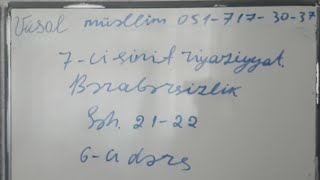 Vüsal müəllim 051-717-30-37
7-ci sinif riyaziyyat.
Bərabərsizlik
Səh. 21-22
6-cı dərs